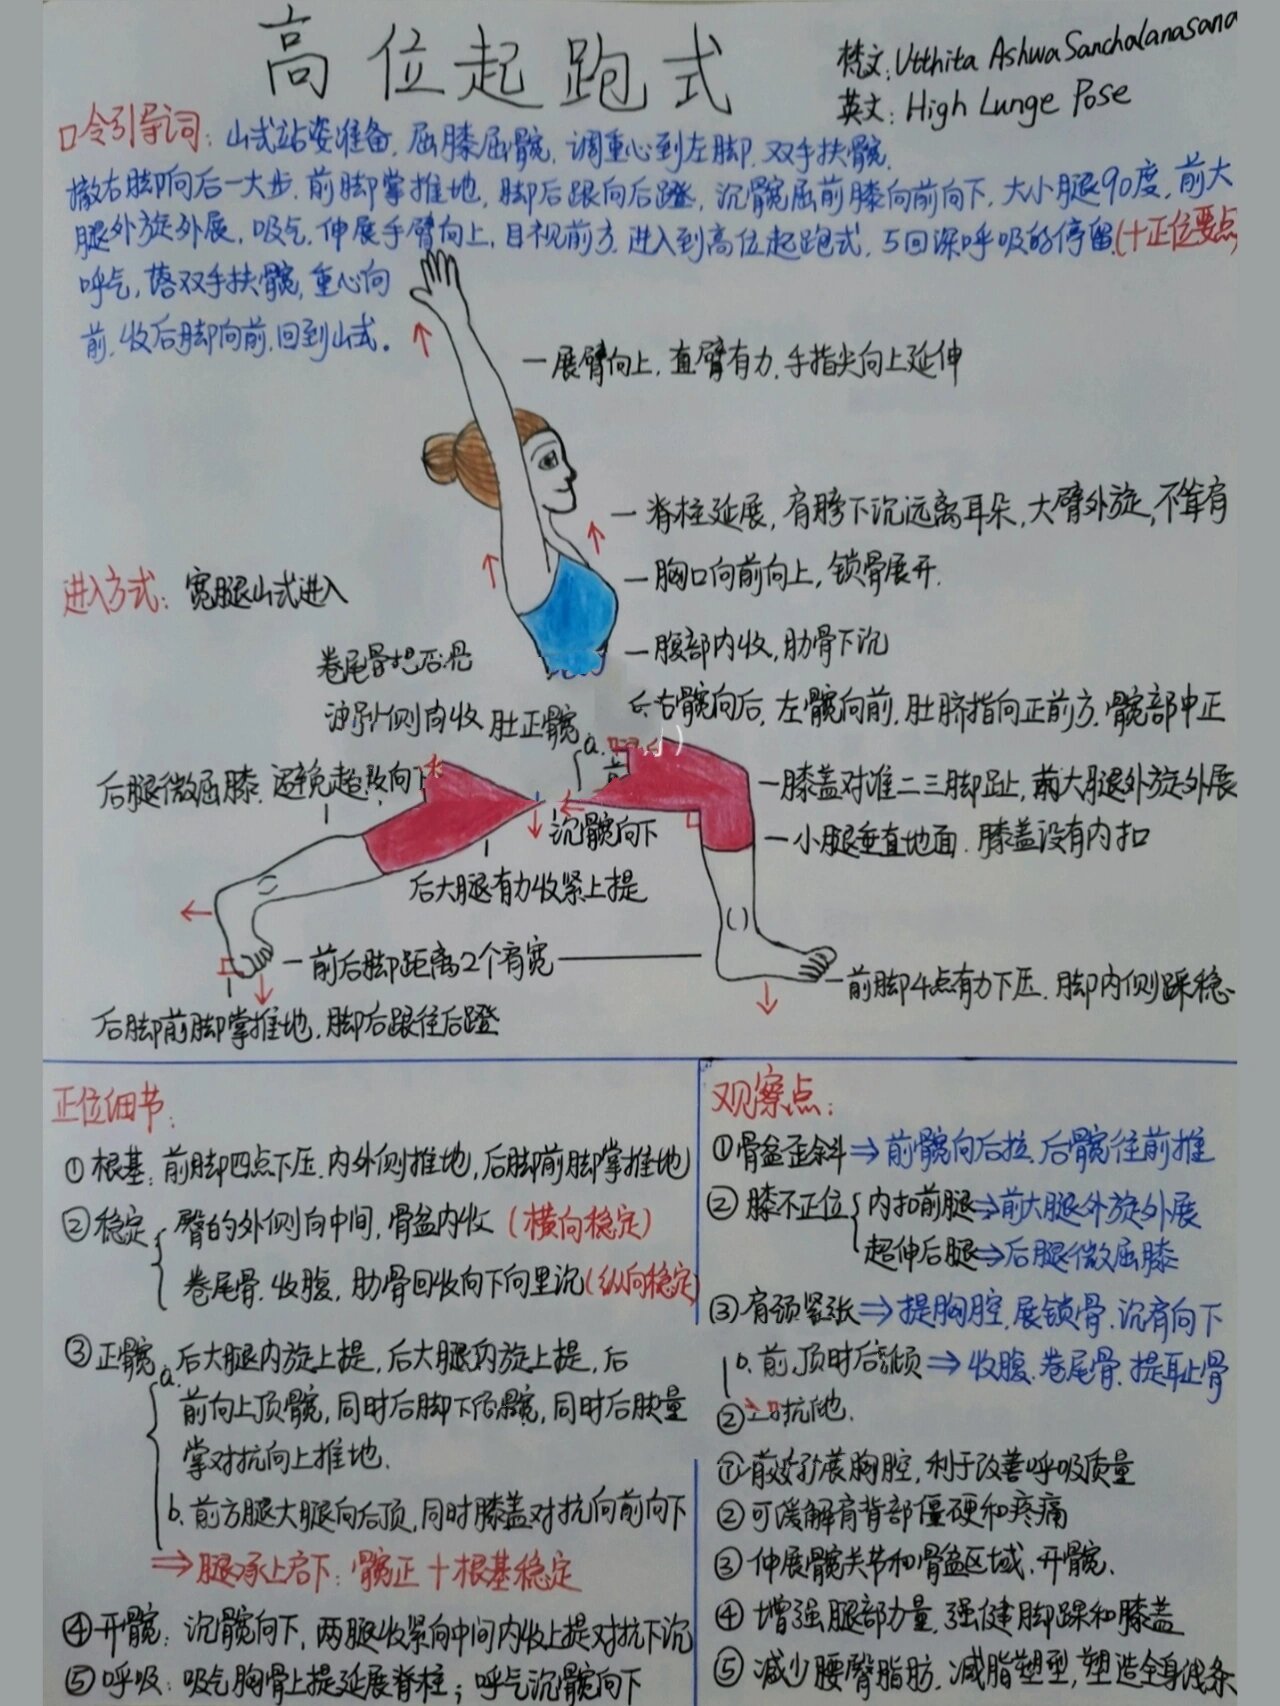 高位起跑式
梵文: Utthita Ashwa Sanchalanasana
英文: High Lunge Pose
口令引导词: 山式站姿准备, 屈膝屈髋, 调重心到左脚, 双手扶髋,
撤右脚向后一大步, 前脚掌推地, 脚后跟向后蹬, 沉髋屈前膝向前向下, 大小腿90度, 前大
腿外旋外展, 吸气, 伸展手臂向上, 目视前方, 进入到高位起跑式, 5回深呼吸的停留(+正位要点
呼气, 落双手扶髋, 重心向
前, 收后脚向前, 回到山式。
一展臂向上, 直臂有力, 手指尖向上延伸
一脊柱延展, 肩膀下沉远离耳朵, 大臂外旋, 不耸肩
一胸口向前向上, 锁骨展开.
进入方式: 宽腿山式进入
一腹部内收, 肋骨下沉
卷尾骨
侧向内收 肚正髋
右髋向后, 左髋向前, 肚脐指向正前方, 髋部中正
a.
后腿微屈膝, 避免超
向下
一膝盖对准二三脚趾, 前大腿外旋外展
沉髋向下
一小腿垂直地面, 膝盖没有内扣
后大腿有力收紧上提
一前后脚距离2个肩宽
一前脚4点有力下压, 脚内侧踩稳
后脚前脚掌推地, 脚后跟往后蹬
正位细节:
①根基: 前脚四点下压, 内外侧推地, 后脚前脚掌推地
②稳定{臀的外侧向中间, 骨盆内收(横向稳定)
卷尾骨, 收腹, 肋骨回收向下向里沉(纵向稳定)
③正髋 a. 后大腿内旋上提, 后大腿内旋上提, 后
前向上顶髋, 同时后脚下髋, 同时后
掌对抗向上推地.
b. 前方腿大腿向后顶, 同时膝盖对抗向前向下
⇒腿承上启下: 髋正+根基稳定
④开髋: 沉髋向下, 两腿收紧向中间内收上提对抗下沉
⑤呼吸: 吸气胸骨上提延展脊柱; 呼气沉髋向下
观察点:
①骨盆歪斜⇒前髋向后拉, 后髋往前推
②膝不正位{内扣前腿⇒前大腿外旋外展
超伸后腿⇒后腿微屈膝
③肩颈紧张⇒提胸腔, 展锁骨, 沉肩向下
b. 前, 顶时后倾⇒收腹, 卷尾骨, 提耻骨
②抗地.
①扩展胸腔, 利于改善呼吸质量
②可缓解肩背部僵硬和疼痛
③伸展髋关节和骨盆区域, 开髋.
④增强腿部力量, 强健脚踝和膝盖
⑤减少腰臀脂肪, 减脂塑型, 塑造全身线条